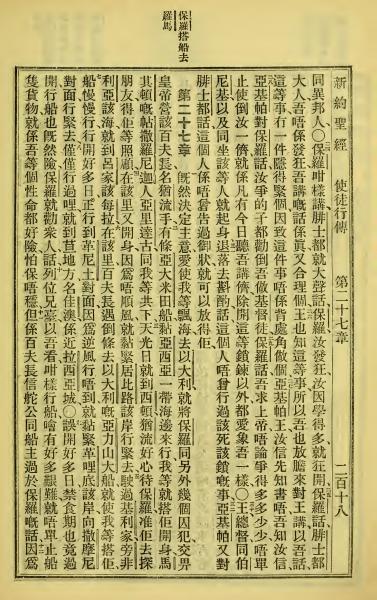 新約聖經 使徒行傳 第二十七章 二百十八
同異邦人〇保羅咁樣講腓士都就大聲話保羅汝發狂汝因學得多就狂開保羅話腓士都
大人吾唔係發狂吾講嘅話係眞又合理個王也知這等事所以吾也放膽來對王講以吾話
這等事冇一件隱得緊個因致這件事唔係背處角做個亞基帕王汝信先知書唔吾知汝信
亞基帕對保羅話汝爭的子都勸倒吾做基督徒保羅話吾求上帝唔論爭得多多少少唔單
止使倒汝一儕就係凡有今日聽吾講儕除開這等鎖鍊以外都愛象吾一樣〇王總督同伯
尼基以及同坐該等人就起身退落去斟酌話這個人唔曾行過該死該鎖嘅事亞基帕又對
腓士都話這個人係唔曾告過御狀就可以放得佢
保羅搭船去
羅馬
第二十七章 旣然決定主意愛使我等飄海去以大利就將保羅同另外幾個囚犯交畀
皇帝營該百夫長名猶流手有條亞大米田船黏亞西亞一帶海邊來行我等就搭佢開身馬
其頓嘅帖撒羅尼迦人亞里達古同我等共下天光日就到西頓猶流好心待保羅准佢去探
朋友得佢等照顧在該里又開身因爲唔順風就黏緊居比路該岸行緊去駛過基利家旁非
利亞該海就到呂家該每拉在該里百夫長遇倒條去以大利嘅亞力山大船就使我等搭佢
船慢慢行行開好多日正行到革尼土對面因爲逆風行唔到就黏緊革哩底該岸向撒摩尼
對面行緊去僅僅行過哩就到地方名佳澳係近拉西亞城〇誤開好多日禁食期也竟過
開行船也旣然險保羅就勸衆人話列位兄臺以吾看咁樣行船噲有好多艱難就唔單止船
隻貨物就係吾等個性命都好險怕保唔穩但係百夫長信舵公同船主過於保羅嘅話因爲